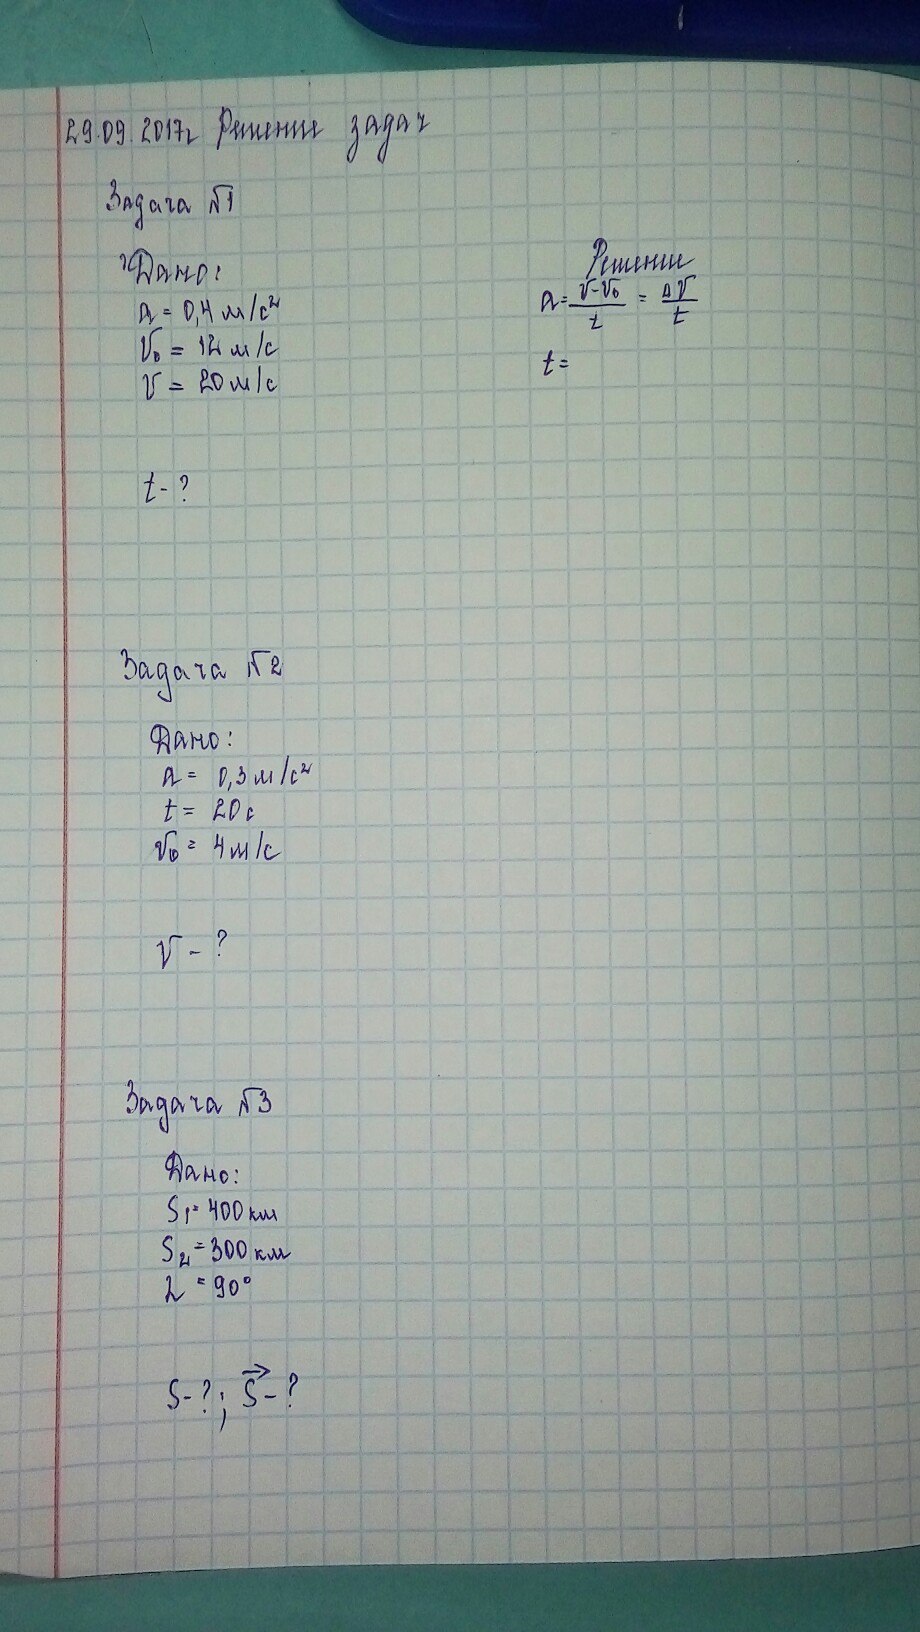 29.09.2017г Решение задач
Задача №1
Дано:
a = 0,4 м/с²
V₀ = 12 м/с
V = 20 м/с
t - ?
Решение
a = (V-V₀)/t = ΔV/t
t =
Задача №2
Дано:
a = 0,3 м/с²
t = 20 с
V₀ = 4 м/с
V - ?
Задача №3
Дано:
S₁ = 400 км
S₂ = 300 км
α = 90°
S - ? ; S⃗ - ?